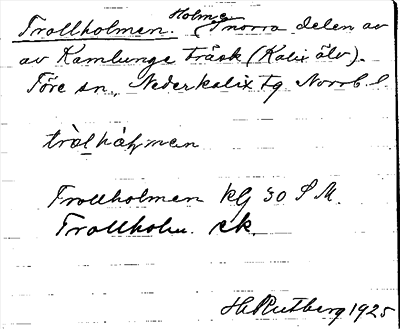 Trollholmen. Holme i norra delen av
av Kamlunge träsk (Kalix älv).
Töre sn., Nederkalix tg Norrb. l.
tròlhåɫmen
Trollholmen kG 30 S M.
Trollholm. ek.
H Rutberg 1925